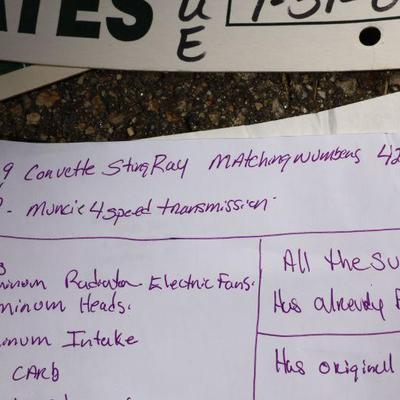 ATES U 1-31-0
E
9 Corvette StingRay Matching numbers 42
- Muncie 4 speed transmission.
minum Radiator Electric Fans.
minum Heads.
inum Intake
CARb
All the su
Has already
Has originell